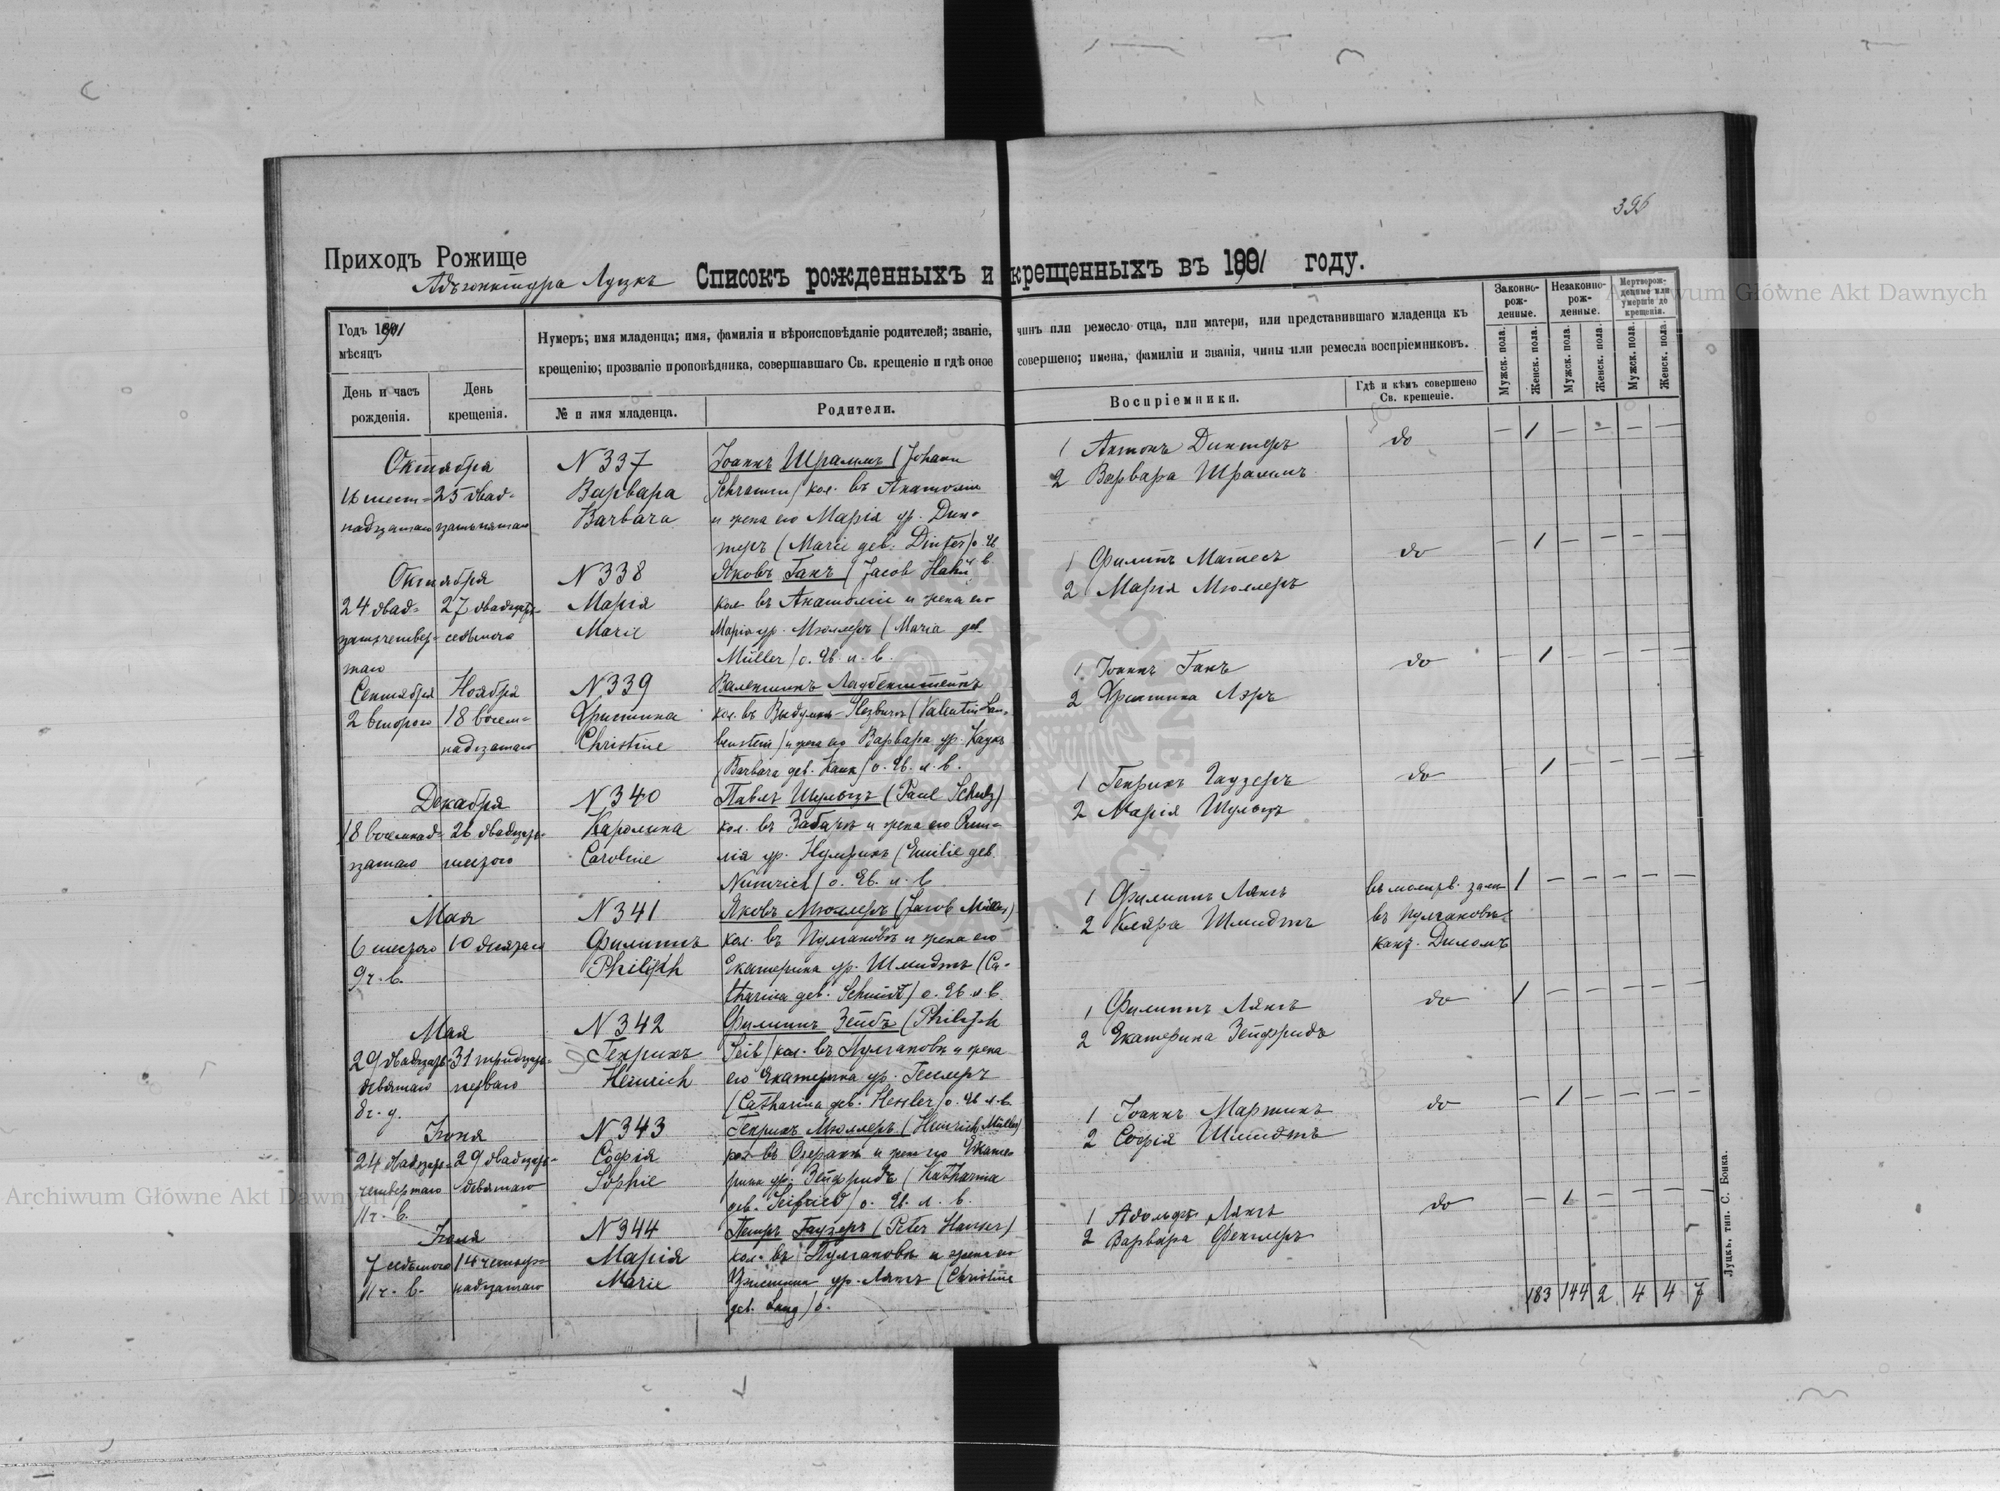 396
Приходъ Рожище
Адъюнктура Луцкъ
Списокъ рожденныхъ и крещенныхъ въ 1891 году.
Годъ 1891
мѣсяцъ
День и часъ рожденія.
День крещенія.
Нумеръ; имя младенца; имя, фамилія и вѣроисповѣданіе родителей; званіе, чинъ или ремесло отца, или матери, или представившаго младенца къ
крещенію; прозваніе проповѣдника, совершавшаго Св. крещеніе и гдѣ оное совершено; имена, фамиліи и званія, чины или ремесла воспріемниковъ.
№ и имя младенца.
Родители.
Воспріемники.
Гдѣ и кѣмъ совершено Св. крещеніе.
Законно-рож-денные.
Незаконно-рож-денные.
Мертворож-денные или умершіе до крещенія.
Мужск. пола.
Женск. пола.
Мужск. пола.
Женск. пола.
Мужск. пола.
Женск. пола.
Октября
16 шест-
надцатаго
25 двад-
цать пятаго
N 337
Варвара
Barbara
Іоаннъ Шраммъ (Johann
Schramm) кол. въ Анатолiи
и жена его Марія ур. Дин-
теръ (Marie geb. Dinter) о. Ев.
л. в.
1 Антонъ Динтеръ
2 Варвара Шраммъ
do
— 1 — — — —
Октября
24 двад-
цать четвер-
таго
27 двадцать
седьмого
N 338
Марія
Marie
Яковъ Ганъ (Jacob Hahn)
кол. въ Анатоліи и жена его
Марія ур. Мюллеръ (Maria geb.
Müller) о. Ев. л. в.
1 Филиппъ Матесъ
2 Марія Мюллеръ
do
— 1 — — — —
Сентября
2 второго
Ноября
18 восем-
надцатаго
N 339
Христина
Christine
Валентинъ Лаубенштейнъ
кол. въ (Valentin Lau-
benstein) и жена его Варвара ур. Каукъ
(Barbara geb. Kauk) о. Ев. л. в.
1 Іоаннъ Ганъ
2 Христина Лэръ
do
— 1 — — — —
Декабря
18 восемнад-
цатаго
26 двадцать
шестого
N 340
Каролина
Caroline
Павлъ Шульцъ (Paul Schulz)
кол. въ Забара и жена его Эми-
лія ур. Нумрихъ (Emilie geb.
Numrich) о. Ев. л. в.
1 Генрихъ Гаузеръ
2 Марія Шульцъ
do
— 1 — — — —
Мая
6 шестого
9 ч. в.
10 десятаго
N 341
Филиппъ
Philipp
Яковъ Мюллеръ (Jacob Müller)
кол. въ Пулгановѣ и жена его
Екатерина ур. Шмидтъ (Ca-
tharina geb. Schmidt) о. Ев. л. в.
1 Филиппъ Лянгъ
2 Клара Шмидтъ
въ молитв. залѣ
въ Пулгановѣ
кант. Диломъ
1 — — — — —
Мая
29 двадцать
девятаго
8 ч. д.
31 тридцать
перваго
N 342
Генрихъ
Heinrich
Филиппъ Зейбъ (Philipp
Seib) кол. въ Пулгановѣ и жена
его Екатерина ур. Гесслеръ
(Catharina geb. Hessler) о. Ев. л. в.
1 Филиппъ Лянгъ
2 Екатерина Зейфридъ
do
1 — — — — —
Іюня
24 двадцать
четвертаго
11 ч. в.
29 двадцать
девятаго
N 343
Софія
Sophie
Генрихъ Мюллеръ (Heinrich Müller)
кол. въ Озеранѣ и жена его Екате-
рина ур. Зейфридъ (Katharina
geb. Seifried) о. Ев. л. в.
1 Іоаннъ Мартинъ
2 Софія Шмидтъ
do
— 1 — — — —
Іюля
7 седьмого
11 ч. в.
14 четыр-
надцатаго
N 344
Марія
Marie
Петръ Гаузеръ (Peter Hauser)
кол. въ Пулгановѣ и жена его
Христина ур. Лянгъ (Christine
geb. Lang) о.
1 Адольфъ Лянгъ
2 Варвара Фенглеръ
do
— 1 — — — —
183 144 2 4 4 7
Луцкъ, тип. С. Бонка.
Archiwum Główne Akt Dawnych
Archiwum Główne Akt Dawnych